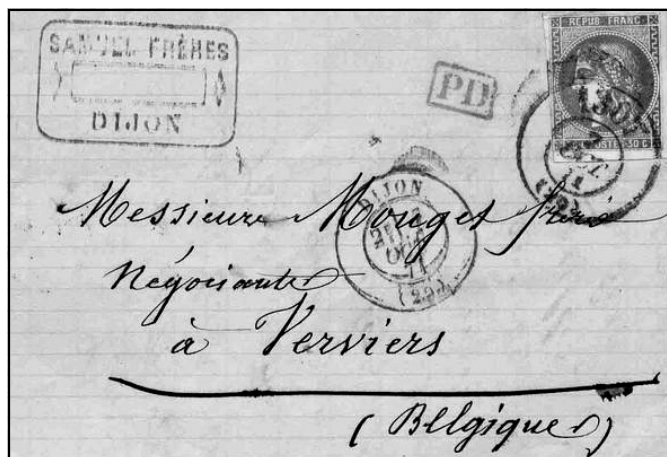 SAMUEL FRÈRES
DIJON
PD
REPUB. FRANC.
POSTES 30 C
DIJON
OCT
71
Messieurs Mouget frères
Négociants
à Verviers
(Belgique)